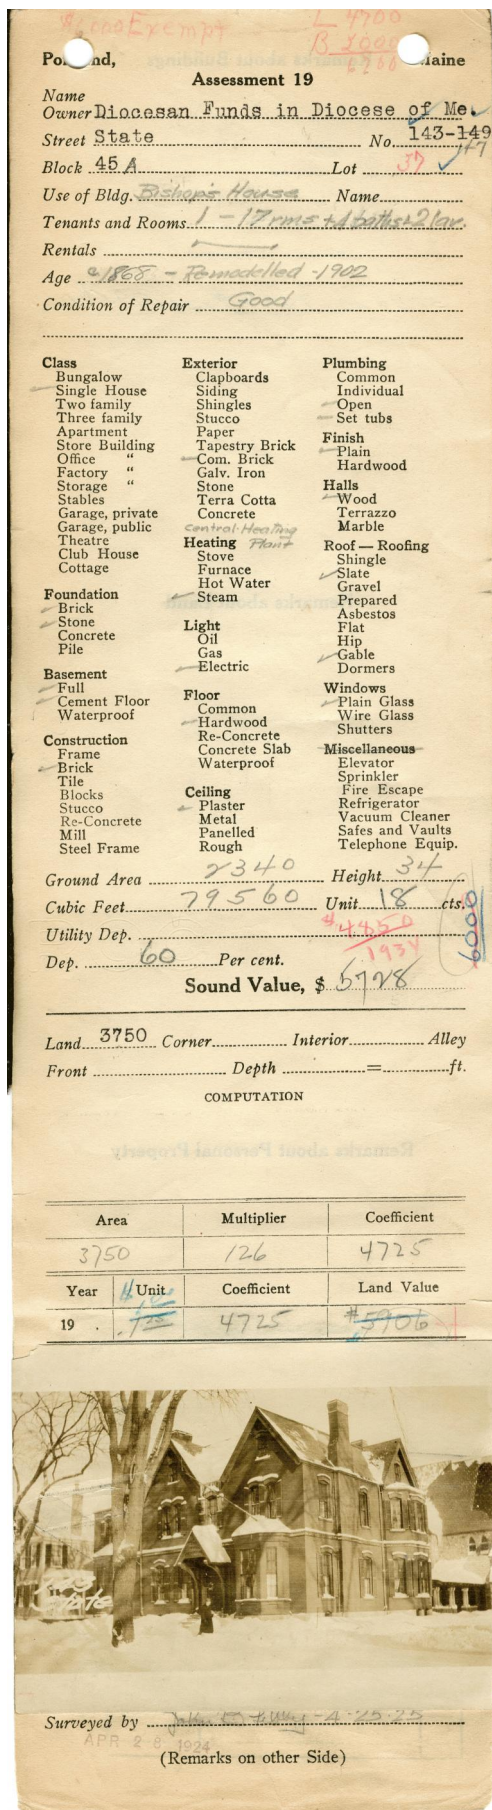 $6000 Exempt
L 4700
B 2000
6700
Portland, Maine
Assessment 19
Name
Owner Diocesan Funds in Diocese of Me.
Street State No. 143-149
147
Block 45 A Lot 37
Use of Bldg. Bishop's House Name
Tenants and Rooms 1 - 17 rms + 4 baths + 2 lav.
Rentals
Age c1868 - Remodelled - 1902
Condition of Repair Good
Class
Bungalow
Single House
Two family
Three family
Apartment
Store Building
Office "
Factory "
Storage "
Stables
Garage, private
Garage, public
Theatre
Club House
Cottage
Foundation
Brick
Stone
Concrete
Pile
Basement
Full
Cement Floor
Waterproof
Construction
Frame
Brick
Tile
Blocks
Stucco
Re-Concrete
Mill
Steel Frame
Exterior
Clapboards
Siding
Shingles
Stucco
Paper
Tapestry Brick
Com. Brick
Galv. Iron
Stone
Terra Cotta
Concrete
Central Heating
Plant
Heating
Stove
Furnace
Hot Water
Steam
Light
Oil
Gas
Electric
Floor
Common
Hardwood
Re-Concrete
Concrete Slab
Waterproof
Ceiling
Plaster
Metal
Panelled
Rough
Plumbing
Common
Individual
Open
Set tubs
Finish
Plain
Hardwood
Halls
Wood
Terrazzo
Marble
Roof — Roofing
Shingle
Slate
Gravel
Prepared
Asbestos
Flat
Hip
Gable
Dormers
Windows
Plain Glass
Wire Glass
Shutters
Miscellaneous
Elevator
Sprinkler
Fire Escape
Refrigerator
Vacuum Cleaner
Safes and Vaults
Telephone Equip.
Ground Area 2340 Height 34
Cubic Feet 79560 Unit 18 cts.
6000
Utility Dep. $4850
1934
Dep. 60 Per cent.
Sound Value, $ 5728
Land 3750 Corner Interior Alley
Front Depth = ft.
COMPUTATION
Remarks about Personal Property
Area Multiplier Coefficient
3750 126 4725
Year Unit Coefficient Land Value
19 . 4725 $5906
143
State
Surveyed by 4-25-25
APR 28 1924
(Remarks on other Side)